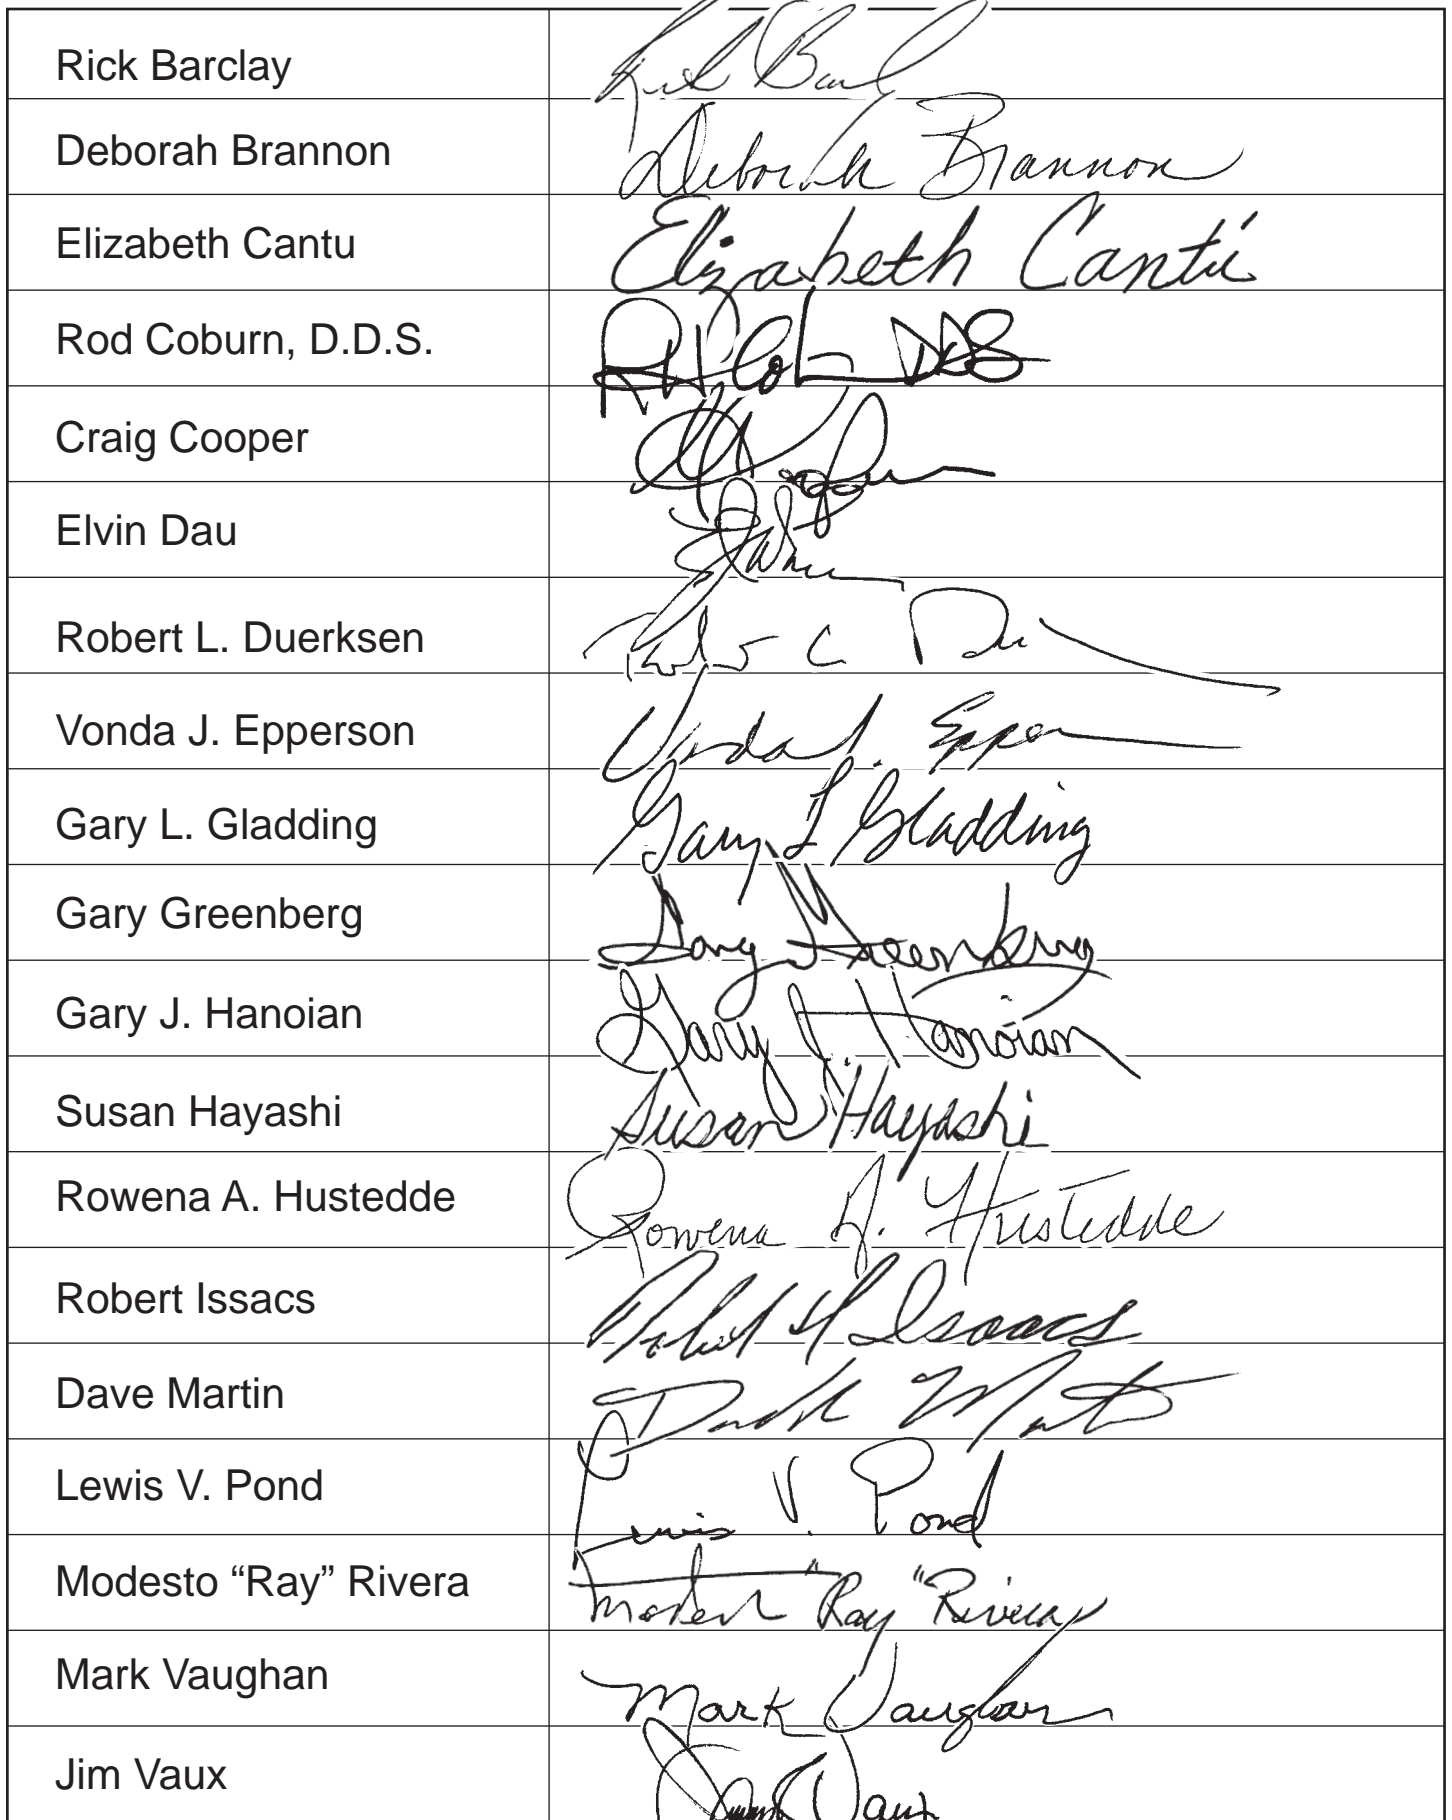 Rick Barclay Rick
Deborah Brannon Deborah Brannon
Elizabeth Cantu Elizabeth Cantú
Rod Coburn, D.D.S. DDS
Craig Cooper
Elvin Dau
Robert L. Duerksen
Vonda J. Epperson Vonda J.
Gary L. Gladding Gary L Gladding
Gary Greenberg Gary Greenberg
Gary J. Hanoian Gary J. Hanoian
Susan Hayashi Susan Hayashi
Rowena A. Hustedde Rowena A. Hustedde
Robert Issacs Robert H Isaacs
Dave Martin
Lewis V. Pond Lewis V. Pond
Modesto “Ray” Rivera "Ray" Rivera
Mark Vaughan Mark Vaughan
Jim Vaux Vaux